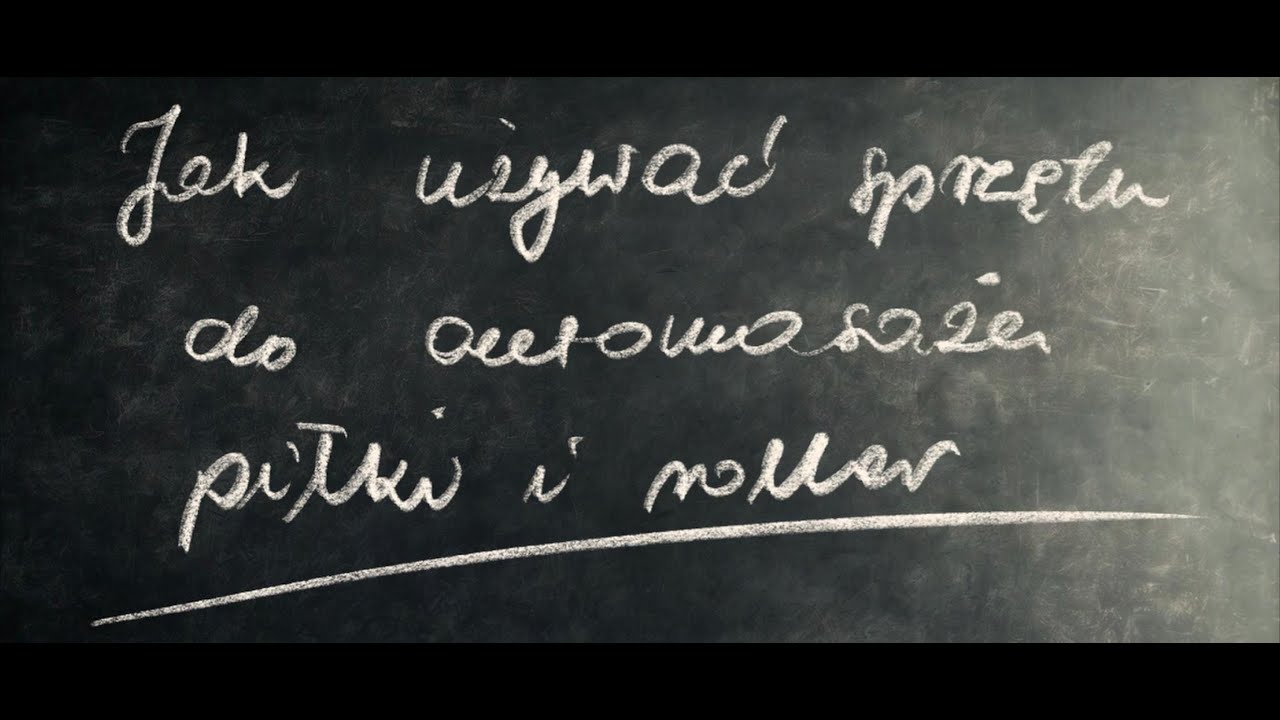 Jak używać sprzętu
do automasażu
piłki i roller